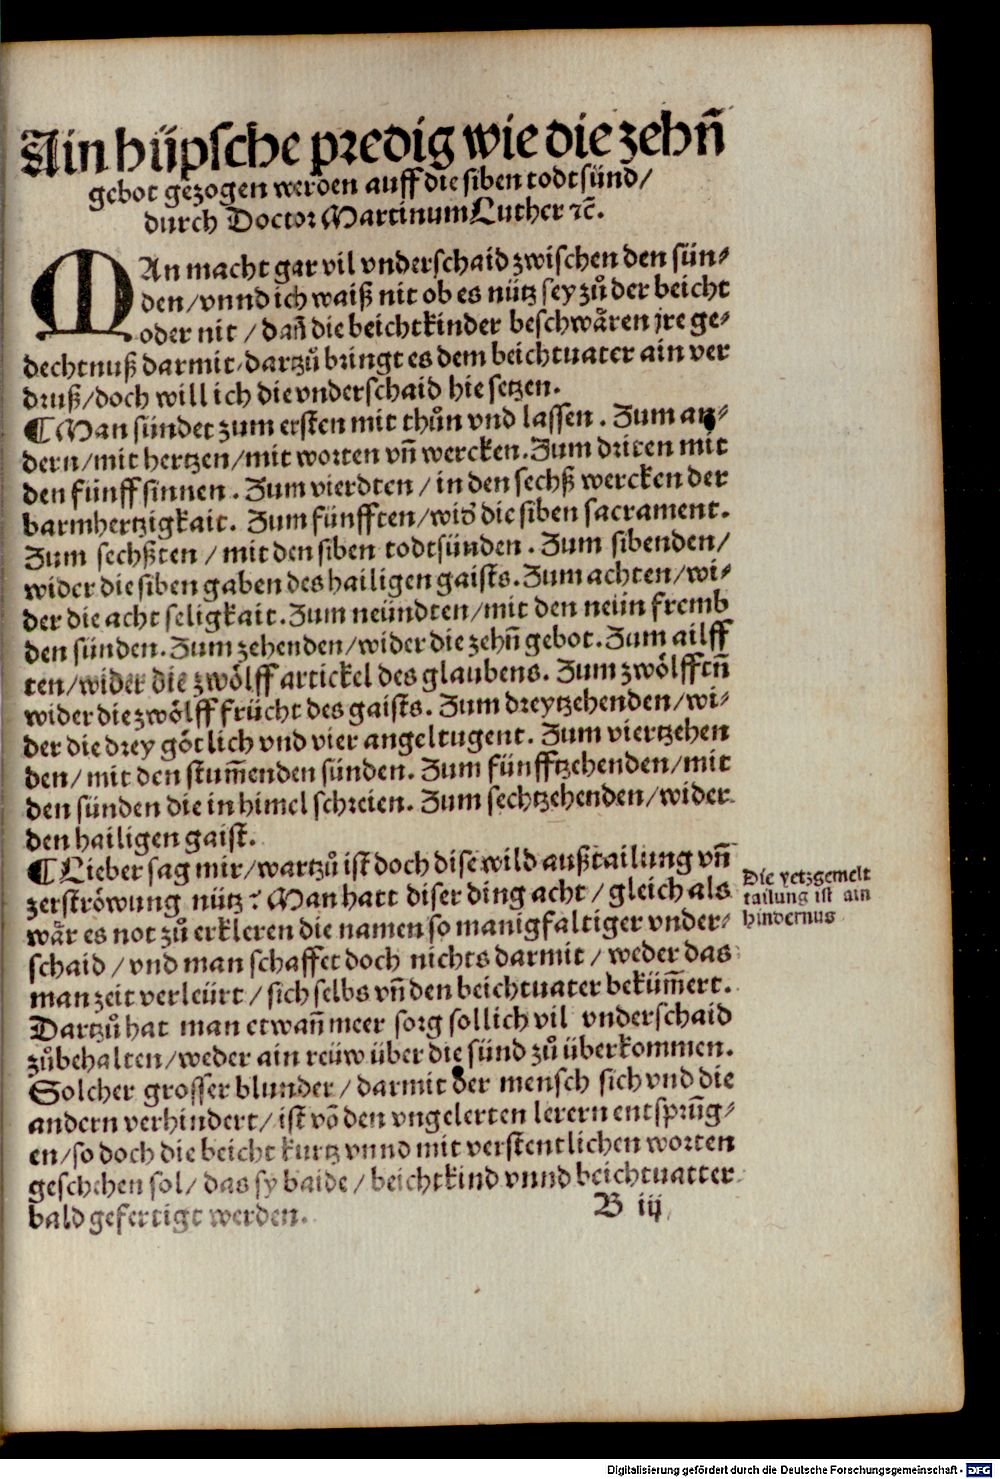 Ain hüpsche predig wie die zehñ
gebot gezogen werden auff die siben todtsünd/
durch Doctor Martinum Luther ꝛc̃.
MAn macht gar vil vnderschaid zwischen den sün-
den/vnnd ich waiß nit ob es nütz sey zů der beicht
oder nit/dañ die beichtkinder beschwären jre ge-
dechtnuß darmit, dartzů bringt es dem beichtuater ain ver
druß/doch will ich die vnderschaid hie setzen.
¶Man sündet zum ersten mit thůn vnd lassen. Zum an-
dern/mit hertzen/mit worten vñ wercken. Zum driten mit
den fünff sinnen. Zum vierdten/in den sechß wercken der
barmhertzigkait. Zum fünfften/wid̃ die siben sacrament.
Zum sechßten/mit den siben todtsünden. Zum sibenden/
wider die siben gaben des hailigen gaists. Zum achten/wi-
der die acht seligkait. Zum neündten/mit den neün fremb
den sünden. Zum zehenden/wider die zehñ gebot. Zum ailff
ten/wider die zwölff artickel des glaubens. Zum zwölfftñ
wider die zwölff frücht des gaists. Zum dreytzehenden/wi-
der die drey götlich vnd vier angeltugent. Zum viertzehen
den/mit den stum̃enden sünden. Zum fünfftzehenden/mit
den sünden die in himel schreien. Zum sechtzehenden/wider
den hailigen gaist.
¶Lieber sag mir/wartzů ist doch dise wild außtailung vñ
zerströwung nütz? Man hatt diser ding acht/gleich als
wär es not zů erkleren die namen so manigfaltiger vnder-
schaid/vnd man schaffet doch nichts darmit/weder das
man zeit verleürt/sich selbs vñ den beichtuater beküm̃ert.
Dartzů hat man etwañ meer sorg sollich vil vnderschaid
zůbehalten/weder ain reüw über die sünd zů überkommen.
Solcher grosser blunder/darmit der mensch sich vnd die
andern verhindert/ist võ den vngelerten lerern entsprũg-
en/so doch die beicht kurtz vnnd mit verstentlichen worten
geschehen sol/das sy baide/beichtkind vnnd beichtuatter
bald gefertigt werden.
B iij
Die yetzgemelt
tailung ist ain
hindernus
Digitalisierung gefördert durch die Deutsche Forschungsgemeinschaft - DFG